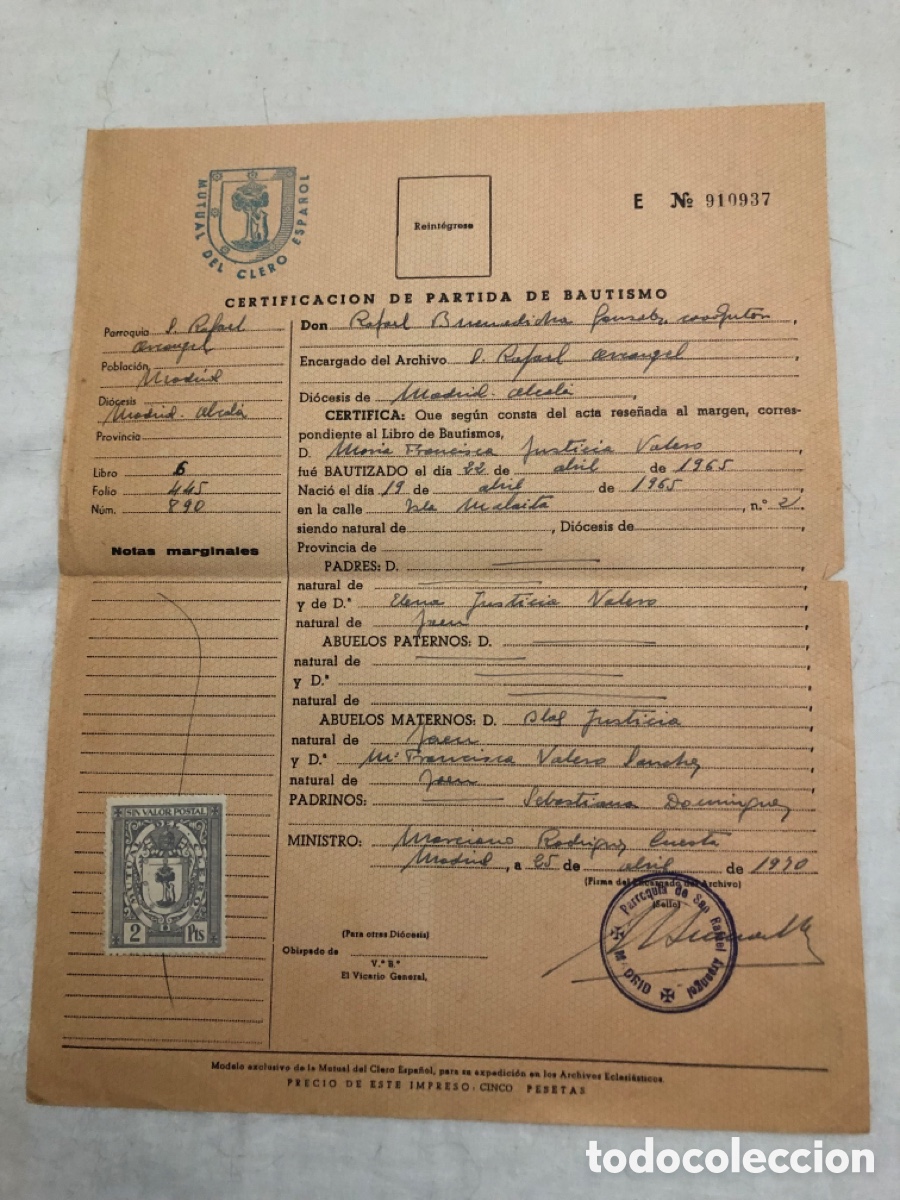 MUTUAL DEL CLERO ESPAÑOL
Reintégrese
E Nº 910937
CERTIFICACION DE PARTIDA DE BAUTISMO
Parroquia S. Rafael
Arcangel
Población
Madrid
Diócesis
Madrid-Alcalá
Provincia
Libro 6
Folio 445
Núm. 890
Notas marginales
Don Rafael
Encargado del Archivo S. Rafael Arcangel
Diócesis de Madrid-Alcalá
CERTIFICA: Que según consta del acta reseñada al margen, corres-
pondiente al Libro de Bautismos,
D. Maria Francisca Justicia Valero
fué BAUTIZADO el día 22 de abril de 1965
Nació el día 19 de abril de 1965
en la calle Isla Malaita, n.º 2
siendo natural de , Diócesis de
Provincia de
PADRES: D.
natural de
y de D.ª Elena Justicia Valero
natural de Jaen
ABUELOS PATERNOS: D.
natural de
y D.ª
natural de
ABUELOS MATERNOS: D. Blas Justicia
natural de Jaen
y D.ª Mª Francisca Valero Sanchez
natural de Jaen
PADRINOS: Sebastiana Dominguez
MINISTRO: Marciano Rodriguez Cuesta
Madrid, a 25 de abril de 1970
(Firma del Encargado del Archivo)
(Sello)
Parroquia de San Rafael Arcangel
MADRID
(Para otras Diócesis)
Obispado de
V.º B.º
El Vicario General,
SIN VALOR POSTAL
2 Pts
Modelo exclusivo de la Mutual del Clero Español, para su expedición en los Archivos Eclesiásticos
PRECIO DE ESTE IMPRESO: CINCO PESETAS
todocoleccion